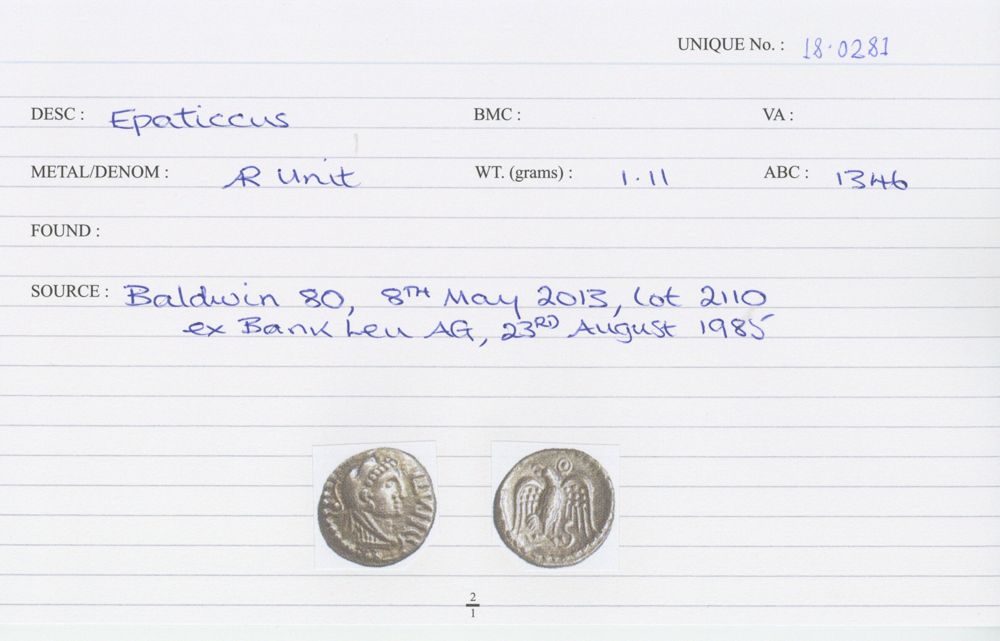 UNIQUE No. : 18·0281
DESC : Epaticcus BMC : VA :
METAL/DENOM : AR Unit WT. (grams) : 1·11 ABC : 1346
FOUND :
SOURCE : Baldwin 80, 8TH May 2013, Lot 2110
ex Bank Leu AG, 23RD August 1985
2
1